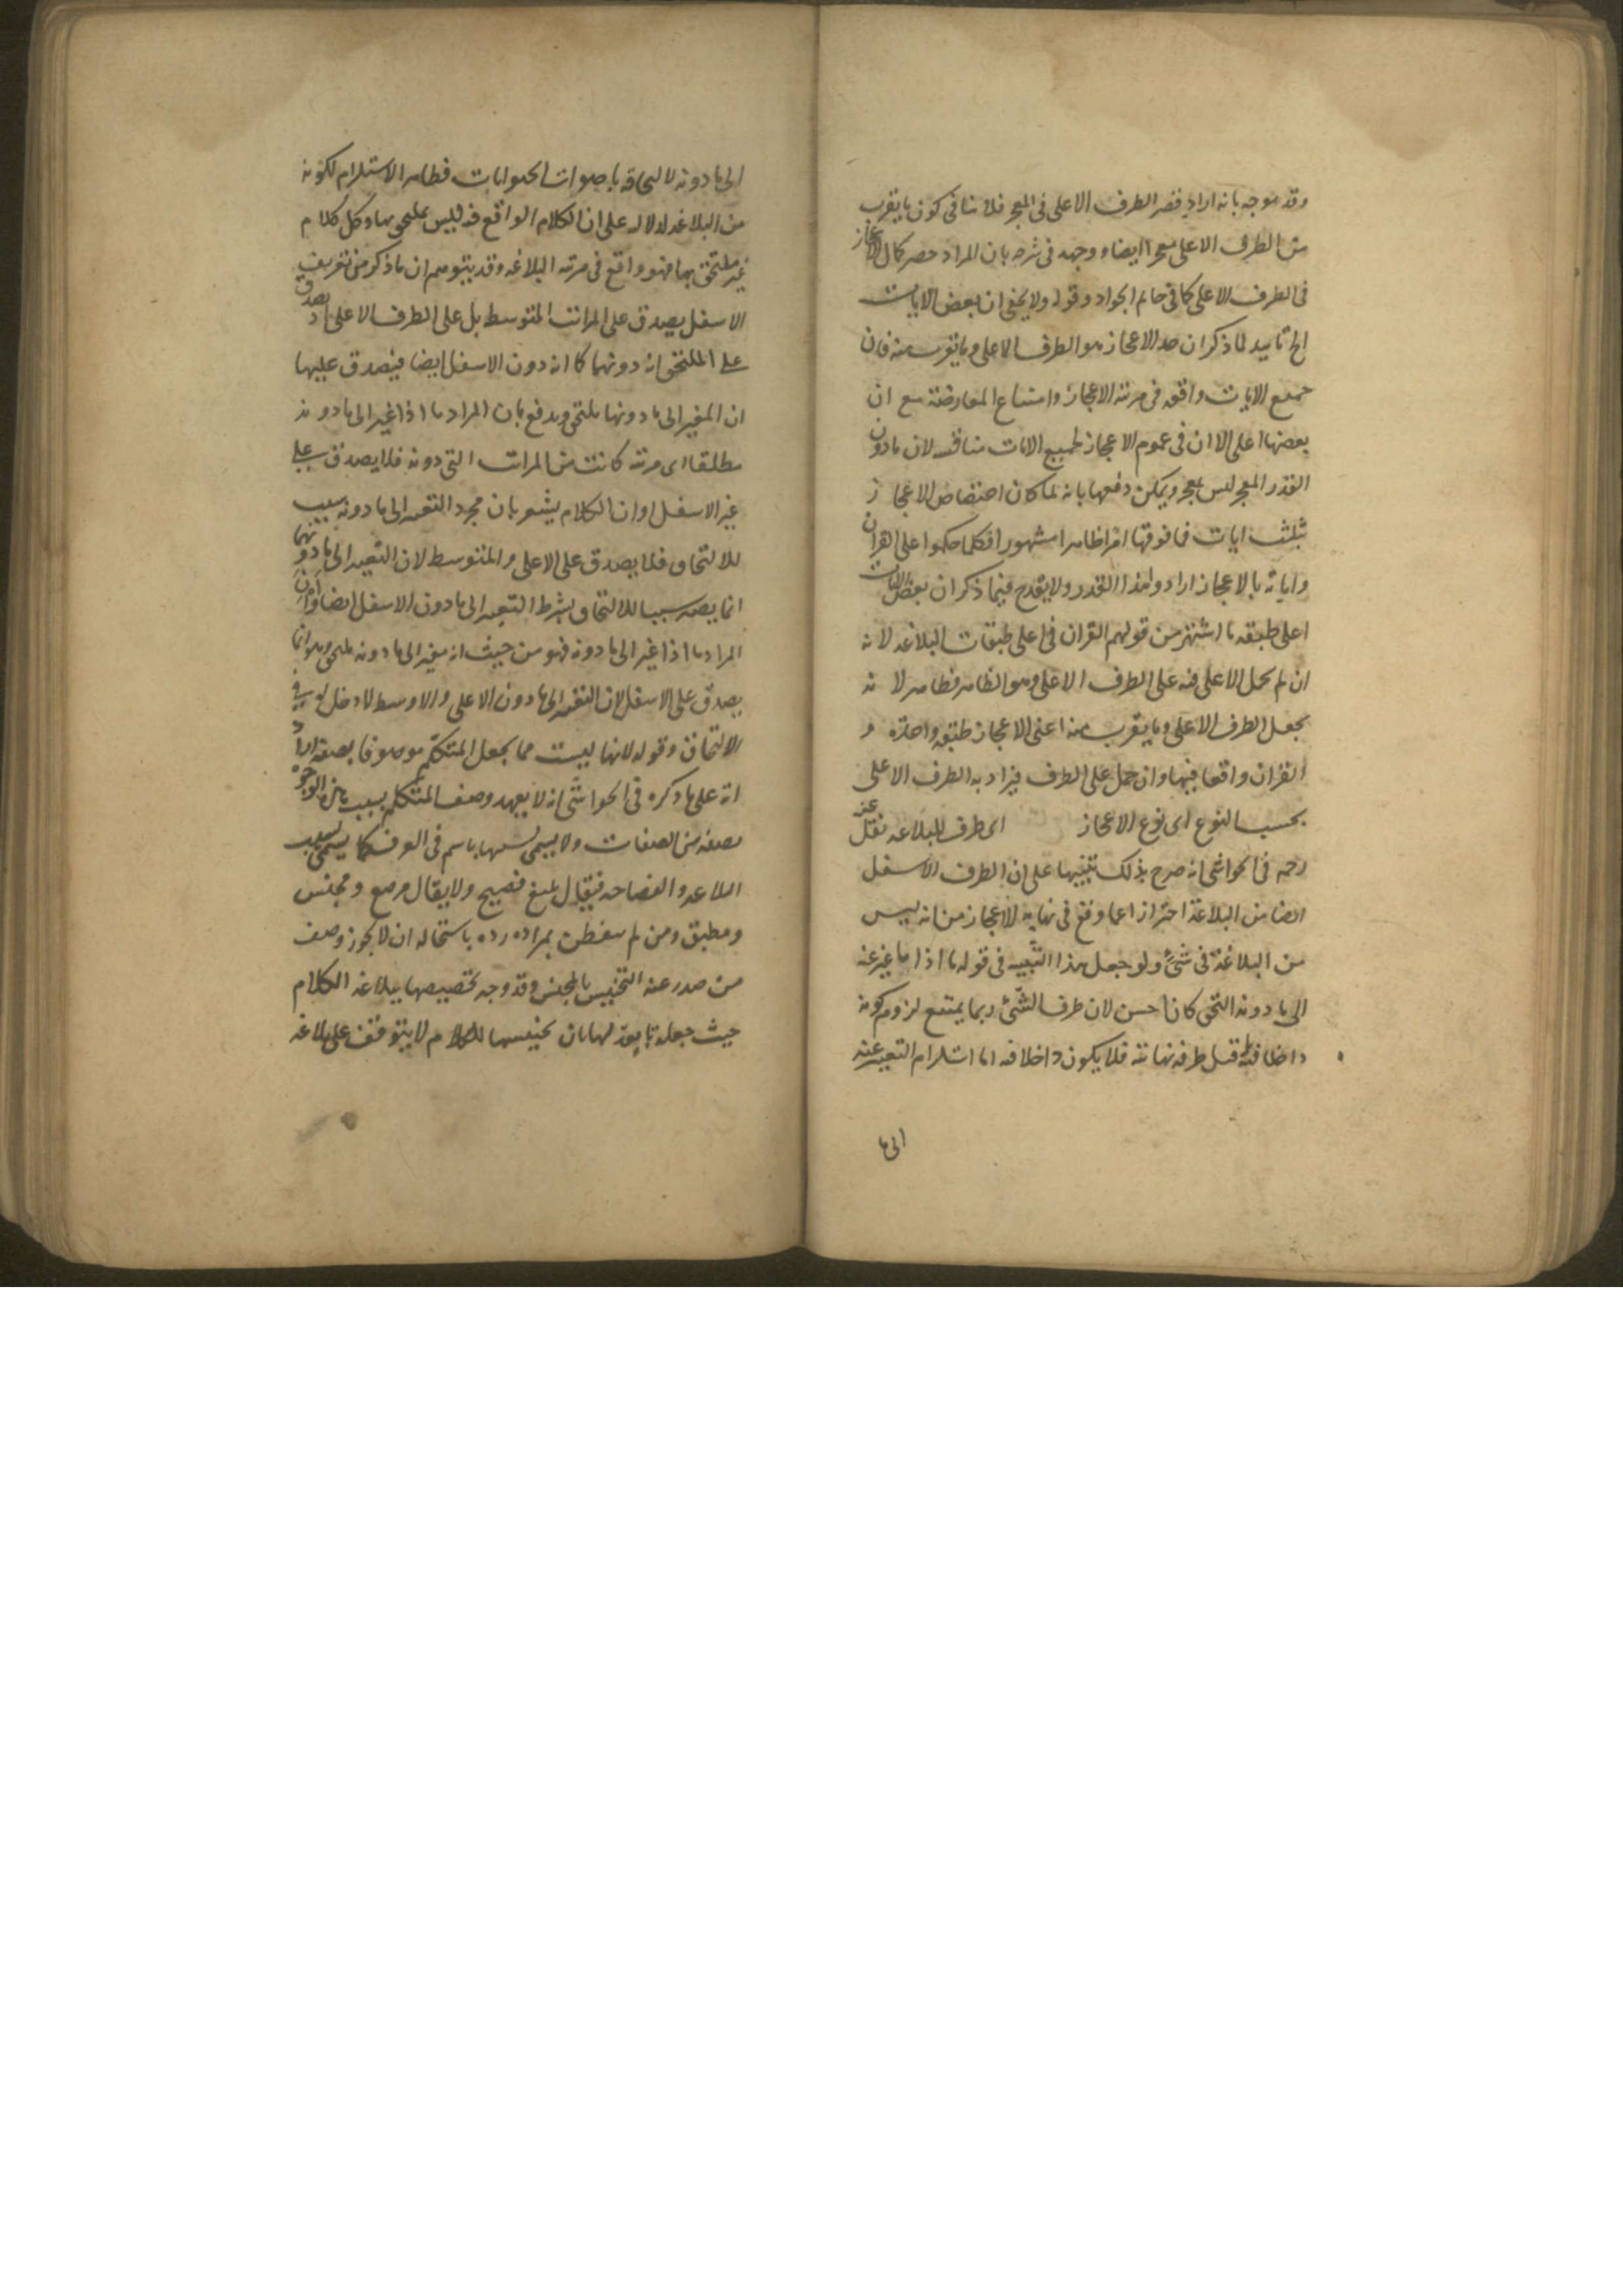 وقد يوجه بانه اراد قصر الطرف الاعلى فى المعجز فلا ينافى كون ما يقرب
من الطرف الاعلى معجزا ايضا ووجهه فى شرحه بان المراد حصر كمال الاعجاز
فى الطرف الاعلى كما فى حاتم الجواد وقوله ولا يخفى ان بعض الايات
الخ تاييد لما ذكر ان حد الاعجاز هو الطرف الاعلى وما يقرب منه فان
جميع الايات واقعة فى مرتبة الاعجاز وامتناع المعارضة مع ان
بعضها اعلى الا ان فى عموم الاعجاز لجميع الايات مناقشة لان ما دون
القدر المعجز ليس بمعجز ويمكن دفعها بانه لما كان اختصاص الاعجاز
بثلث ايات فما فوقها امرا ظاهرا مشهورا فكلما حكموا على القران
واياته بالاعجاز ارادوا هذا القدر ولا يقدح فيما ذكر ان بعض الايات
اعلى طبقه ما اشتهر من قولهم القران فى اعلى طبقات البلاغه لانه
ان لم يحمل الاعلى فيه على الطرف الاعلى وهو الظاهر فظاهر لانه
يجعل الطرف الاعلى وما يقرب منه اعنى الاعجاز طبقة واحدة و
القران واقعا فيها وان حمل على الطرف فيراد به الطرف الاعلى
بحسب النوع اى نوع الاعجاز اى طرف للبلاغه نقل عنه
رحمه فى الحواشى انه صرح بذلك تنبيها على ان الطرف الاسفل
ايضا من البلاغة احترازا عما وقع فى نهاية الاعجاز من انه ليس
من البلاغة فى شئ ولو جعل هذا التنبيه فى قوله ما اذا ما غير عنه
الى ما دونه التحق كان احسن لان طرف الشئ ربما يمتنع لزوم كونه
داخلا فيه قبل طرفه نهايته فلا يكون داخلا فيه اما استلزام التغيير عنه
الى ما
الى ما دونه لالتحاقه باصوات الحيوانات فظاهر الاستلزام لكونه
من البلاغه لدلاله على ان الكلام الواقع فيه ليس بملتحق بها وكل كلام
غير ملتحق بها فهو واقع فى مرتبه البلاغه وقد يتوهم ان ما ذكر من تعريف
الاسفل يصدق على المراتب المتوسط بل على الطرف الاعلى اذ يصدق
على الملتحق انه دونهما كما انه دون الاسفل ايضا فيصدق عليها
ان المغير الى ما دونها ملتحق ويدفع بان المراد ما اذا غير الى ما دونه
مطلقا اى مرتبه كانت من المراتب التى دونه فلا يصدق على
غير الاسفل او ان الكلام يشعر بان مجرد التغيير الى ما دونه سبب
للالتحاق فلا يصدق على الاعلى والمتوسط لان التغيير الى ما دونهما
انما يصير سببا للالتحاق بشرط التغيير الى ما دون الاسفل ايضا او ان
المراد ما اذا غير الى ما دونه فهو من حيث انه مغير الى ما دونه ملتحق وهو انما
يصدق على الاسفل لان التغيير الى ما دون الاعلى والاوسط لا دخل له فى
الالتحاق وقوله لانها ليست مما يجعل المتكلم موصوفا بصفه اراد
انه على ما ذكره فى الحواشى انه لا يعهد وصف المتكلم بسبب هذه الوجوه
بصفه من الصفات ولا يسمى بسببها باسم فى العرف كما يسمى بسبب
البلاغه والفصاحه فيقال بليغ فصيح ولا يقال مرصع ومجنس
ومطبق ومن لم يتفطن بمراده رده باستحاله ان لا يجوز وصف
من صدر عنه التجنيس بالمجنس وقد وجه تخصيصها ببلاغه الكلام
حيث جعله تابعة لها بان تحسينها للكلام لا يتوقف على بلاغه